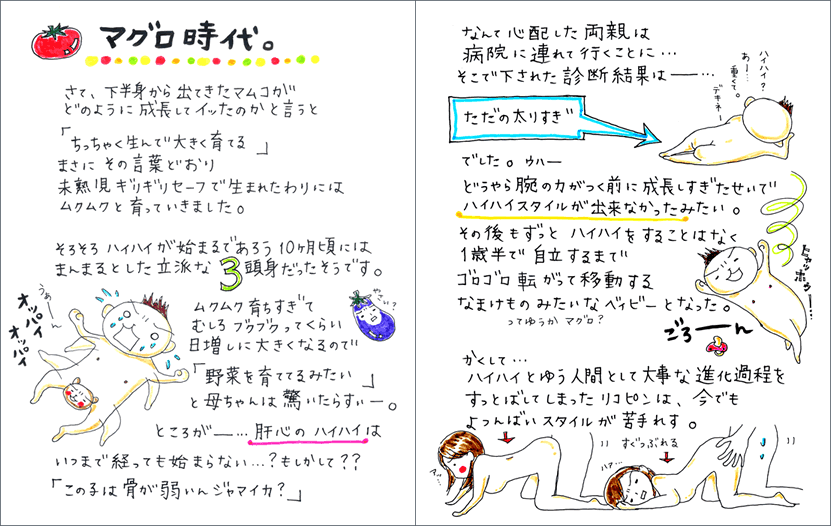 マグロ時代。
さて、下半身から出てきたマムコが
どのように成長してイッたのかと言うと
「ちっちゃく生んで大きく育てる」
まさにその言葉どおり
未熟児ギリギリセーフで生まれたわりには
ムクムクと育っていきました。
そろそろハイハイが始まるであろう10ヶ月頃には
まんまるとした立派な3頭身だったそうです。
うぁーん
オッパイ
オッパイ
ムクムク育ちすぎて
むしろブクブクってくらい
日増しに大きくなるので
やさい?
「野菜を育ててるみたい」
と母ちゃんは驚いたらすぃー。
ところが―…肝心のハイハイは
いつまで経っても始まらない…?もしかして??
「この子は骨が弱いんジャマイカ?」
なんて心配した両親は
病院に連れて行くことに…
そこで下された診断結果は―…
ハイハイ?
あー…
重くて。
デキネー
ただの太りすぎ
でした。ウハー
どうやら腕の力がつく前に成長しすぎたせいで
ハイハイスタイルが出来なかったみたい。
その後もずっとハイハイをすることはなく
1歳半で自立するまで
ゴロゴロ転がって移動する
なまけものみたいなベイビーとなった。
ってゆうかマグロ?
ごろーーん
かくして…
ハイハイとゆう人間として大事な進化過程を
すっとばしてしまったリコピンは、今でも
よつんばいスタイルが苦手れす。
すぐつぶれる